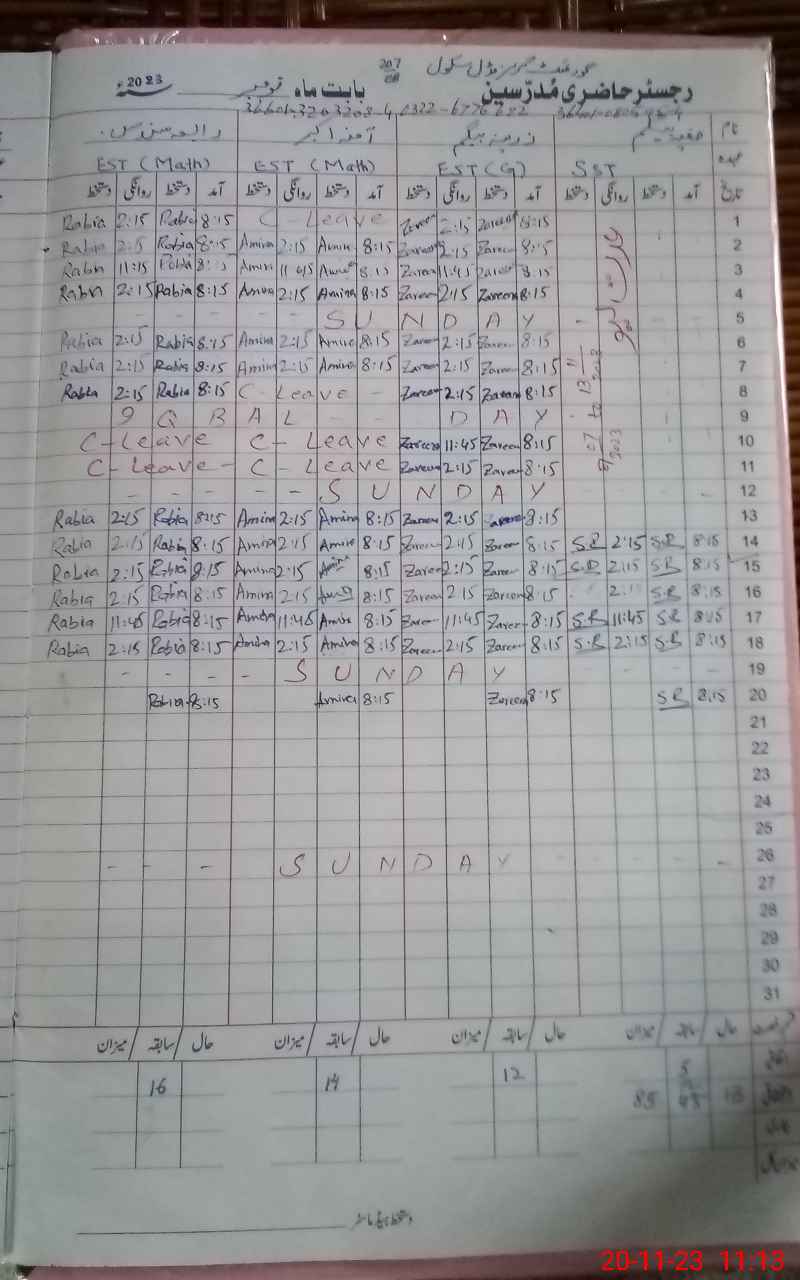 گورنمنٹ گرلز مڈل سکول 207 EB
رجسٹر حاضری مُدرّسین بابت ماہ نومبر 2023
36601-3203208-4 0322-6776682
نام زرینہ بیگم آمنہ اکبر
عہدہ SST EST (G) EST (Math) EST (Math)
تاریخ آمد دستخط روانگی دستخط آمد دستخط روانگی دستخط آمد دستخط روانگی دستخط آمد دستخط روانگی دستخط
Rabia 2:15 Rabia 8:15 C-Leave Zareen 2:15 Zareen 8:15 1
Rabia 2:15 Rabia 8:15 Amina 2:15 Amina 8:15 Zareen 2:15 Zareen 8:15 2
Rabia 11:15 Rabia 8:15 Amina 11:45 8:15 Zareen 11:45 Zareen 8:15 3
Rabia 2:15 Rabia 8:15 Amina 2:15 Amina 8:15 Zareen 2:15 Zareen 8:15 4
- - - - SUNDAY 5
Rabia 2:15 Rabia 8:15 Amina 2:15 Amina 8:15 Zareen 2:15 Zareen 8:15 6
Rabia 2:15 Rabia 8:15 Amina 2:15 Amina 8:15 Zareen 2:15 Zareen 8:15 7
Rabia 2:15 Rabia 8:15 C-Leave - Zareen 2:15 Zareen 8:15 8
9QBAL DAY 9
C-Leave C-Leave Zareen 11:45 Zareen 8:15 10
C-Leave - C-Leave Zareen 2:15 Zareen 8:15 11
- - - - - SUNDAY 12
Rabia 2:15 Rabia 8:15 Amina 2:15 Amina 8:15 Zareen 2:15 Zareen 8:15 13
Rabia 2:15 Rabia 8:15 Amina 2:15 Amina 8:15 Zareen 2:15 Zareen 8:15 S.R 2:15 S.R 8:15 14
Rabia 2:15 Rabia 8:15 Amina 2:15 Amina 8:15 Zareen 2:15 Zareen 8:15 S.R 2:15 S.R 8:15 15
Rabia 2:15 Rabia 8:15 Amina 2:15 8:15 Zareen 2:15 Zareen 8:15 S.R 8:15 16
Rabia 11:45 Rabia 8:15 Amina 11:45 Amina 8:15 Zareen 11:45 Zareen 8:15 S.R 11:45 S.R 8:15 17
Rabia 2:15 Rabia 8:15 Amina 2:15 Amina 8:15 Zareen 2:15 Zareen 8:15 S.R 2:15 S.R 8:15 18
- - - - SUNDAY 19
Rabia 8:15 Amina 8:15 Zareen 8:15 S.R 8:15 20
21
22
23
24
25
- - - SUNDAY - - - - 26
27
28
29
30
31
حال / سابقہ / میزان حال / سابقہ / میزان حال / سابقہ / میزان حال / سابقہ / میزان
5
16 14 12 85
دستخط ہیڈ ماسٹر
20-11-23 11:13